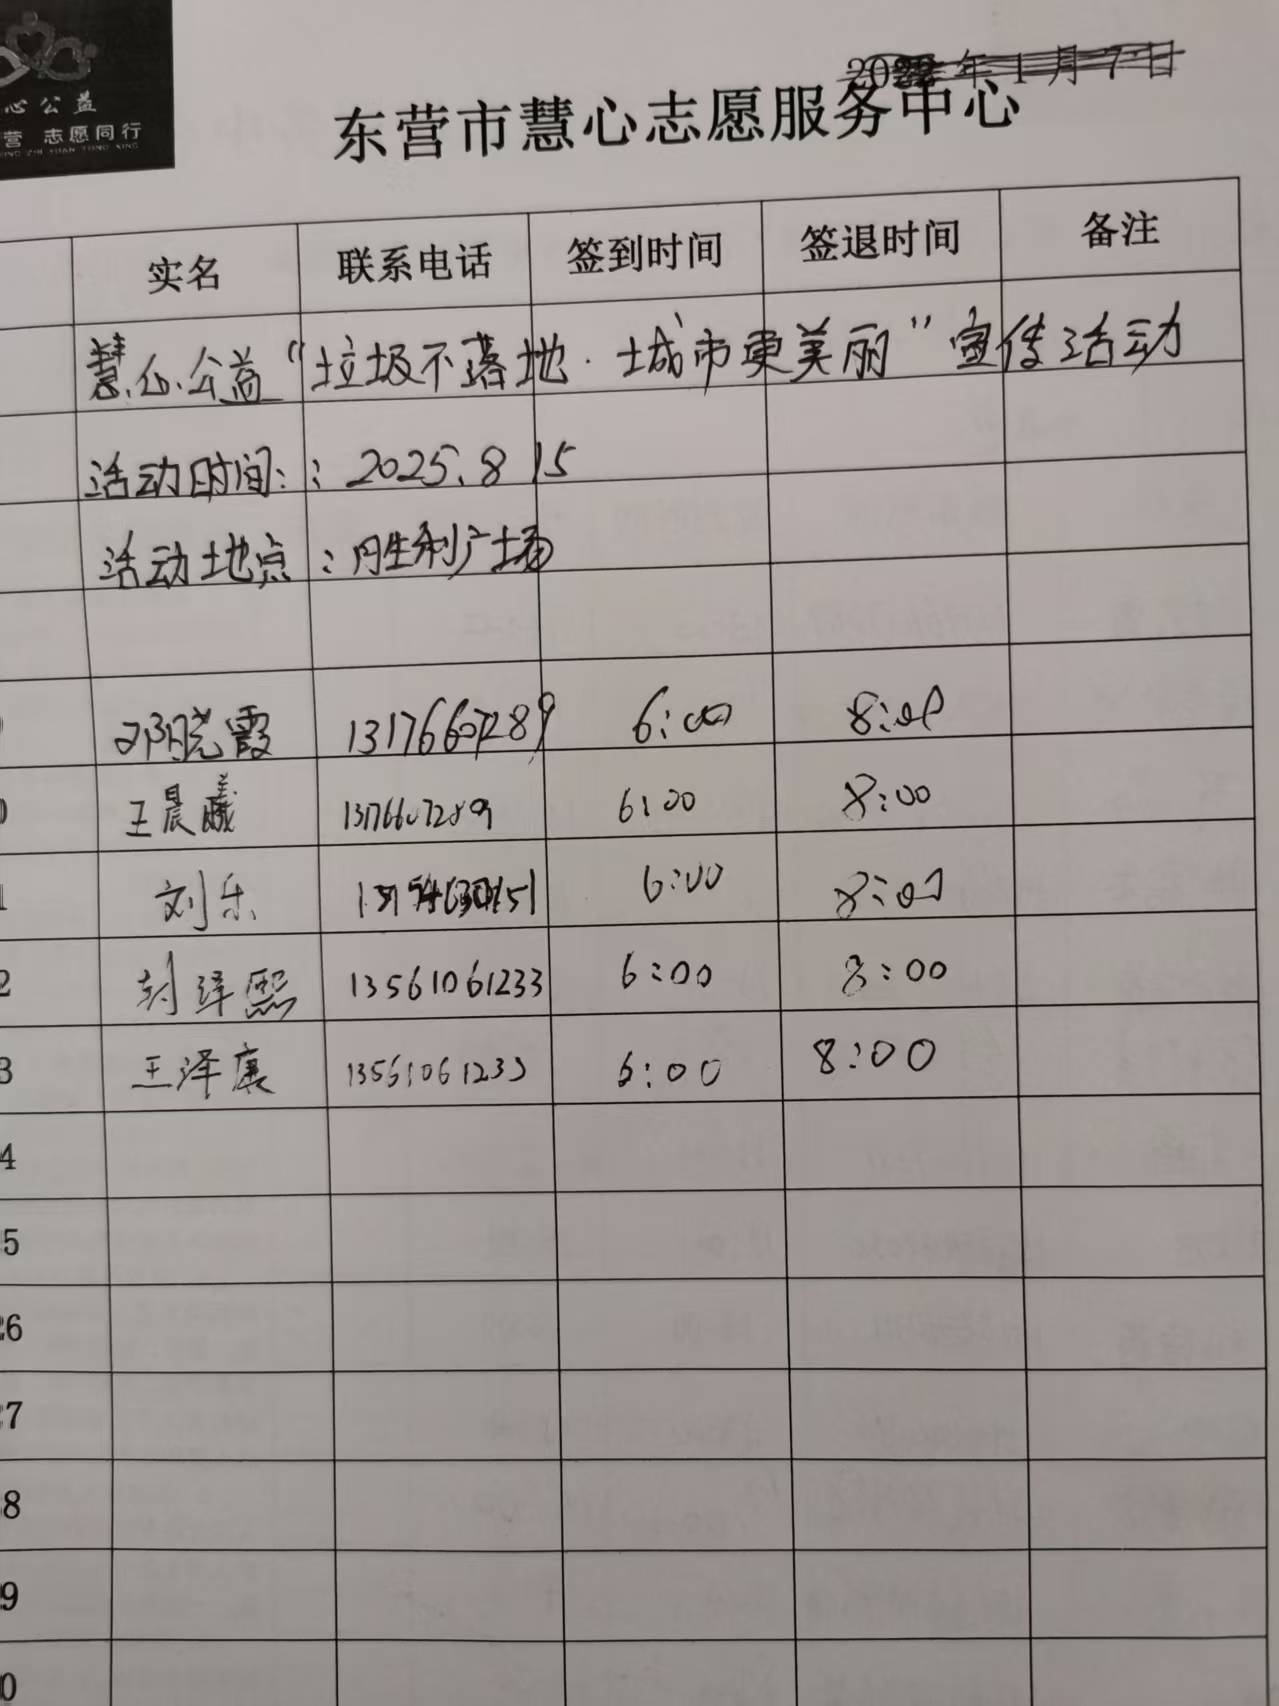 心公益
营 志愿同行
年1月7日
东营市慧心志愿服务中心
实名 联系电话 签到时间 签退时间 备注
慧心公益“垃圾不落地·城市更美丽”宣传活动
活动时间：：2025.8 15
活动地点：胜利广场
邓晓霞 13176607289 6:00 8:00
0 王晨曦 13176607289 6:00 8:00
1 刘乐 6:00 8:00
2 封泽熙 13561061233 6:00 8:00
3 王泽宸 13561061233 6:00 8:00
4
5
26
27
8
9
0